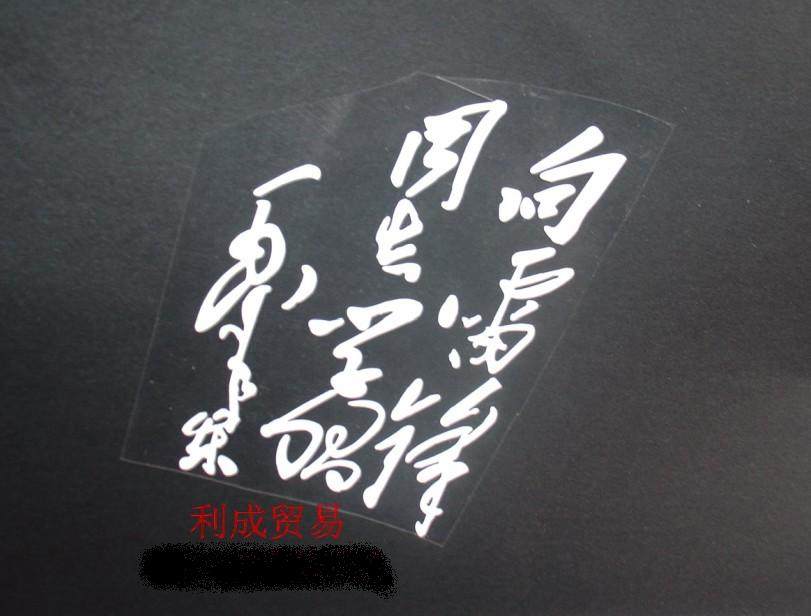 向雷锋
同志学习
毛泽东
利成贸易